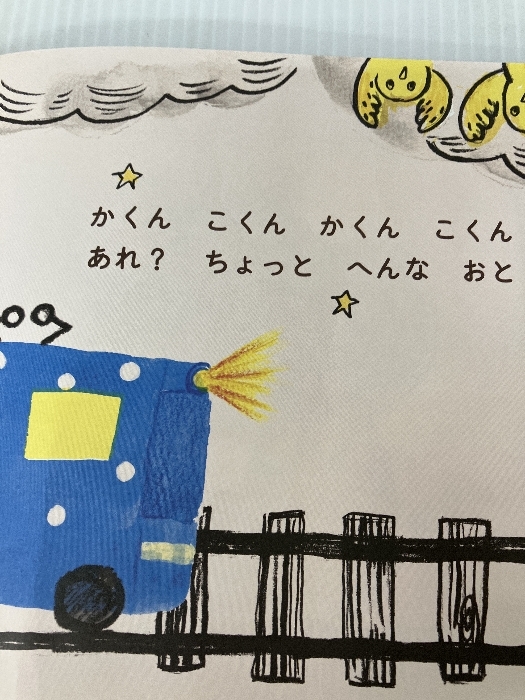 かくん こくん かくん こくん
あれ? ちょっと へんな おと